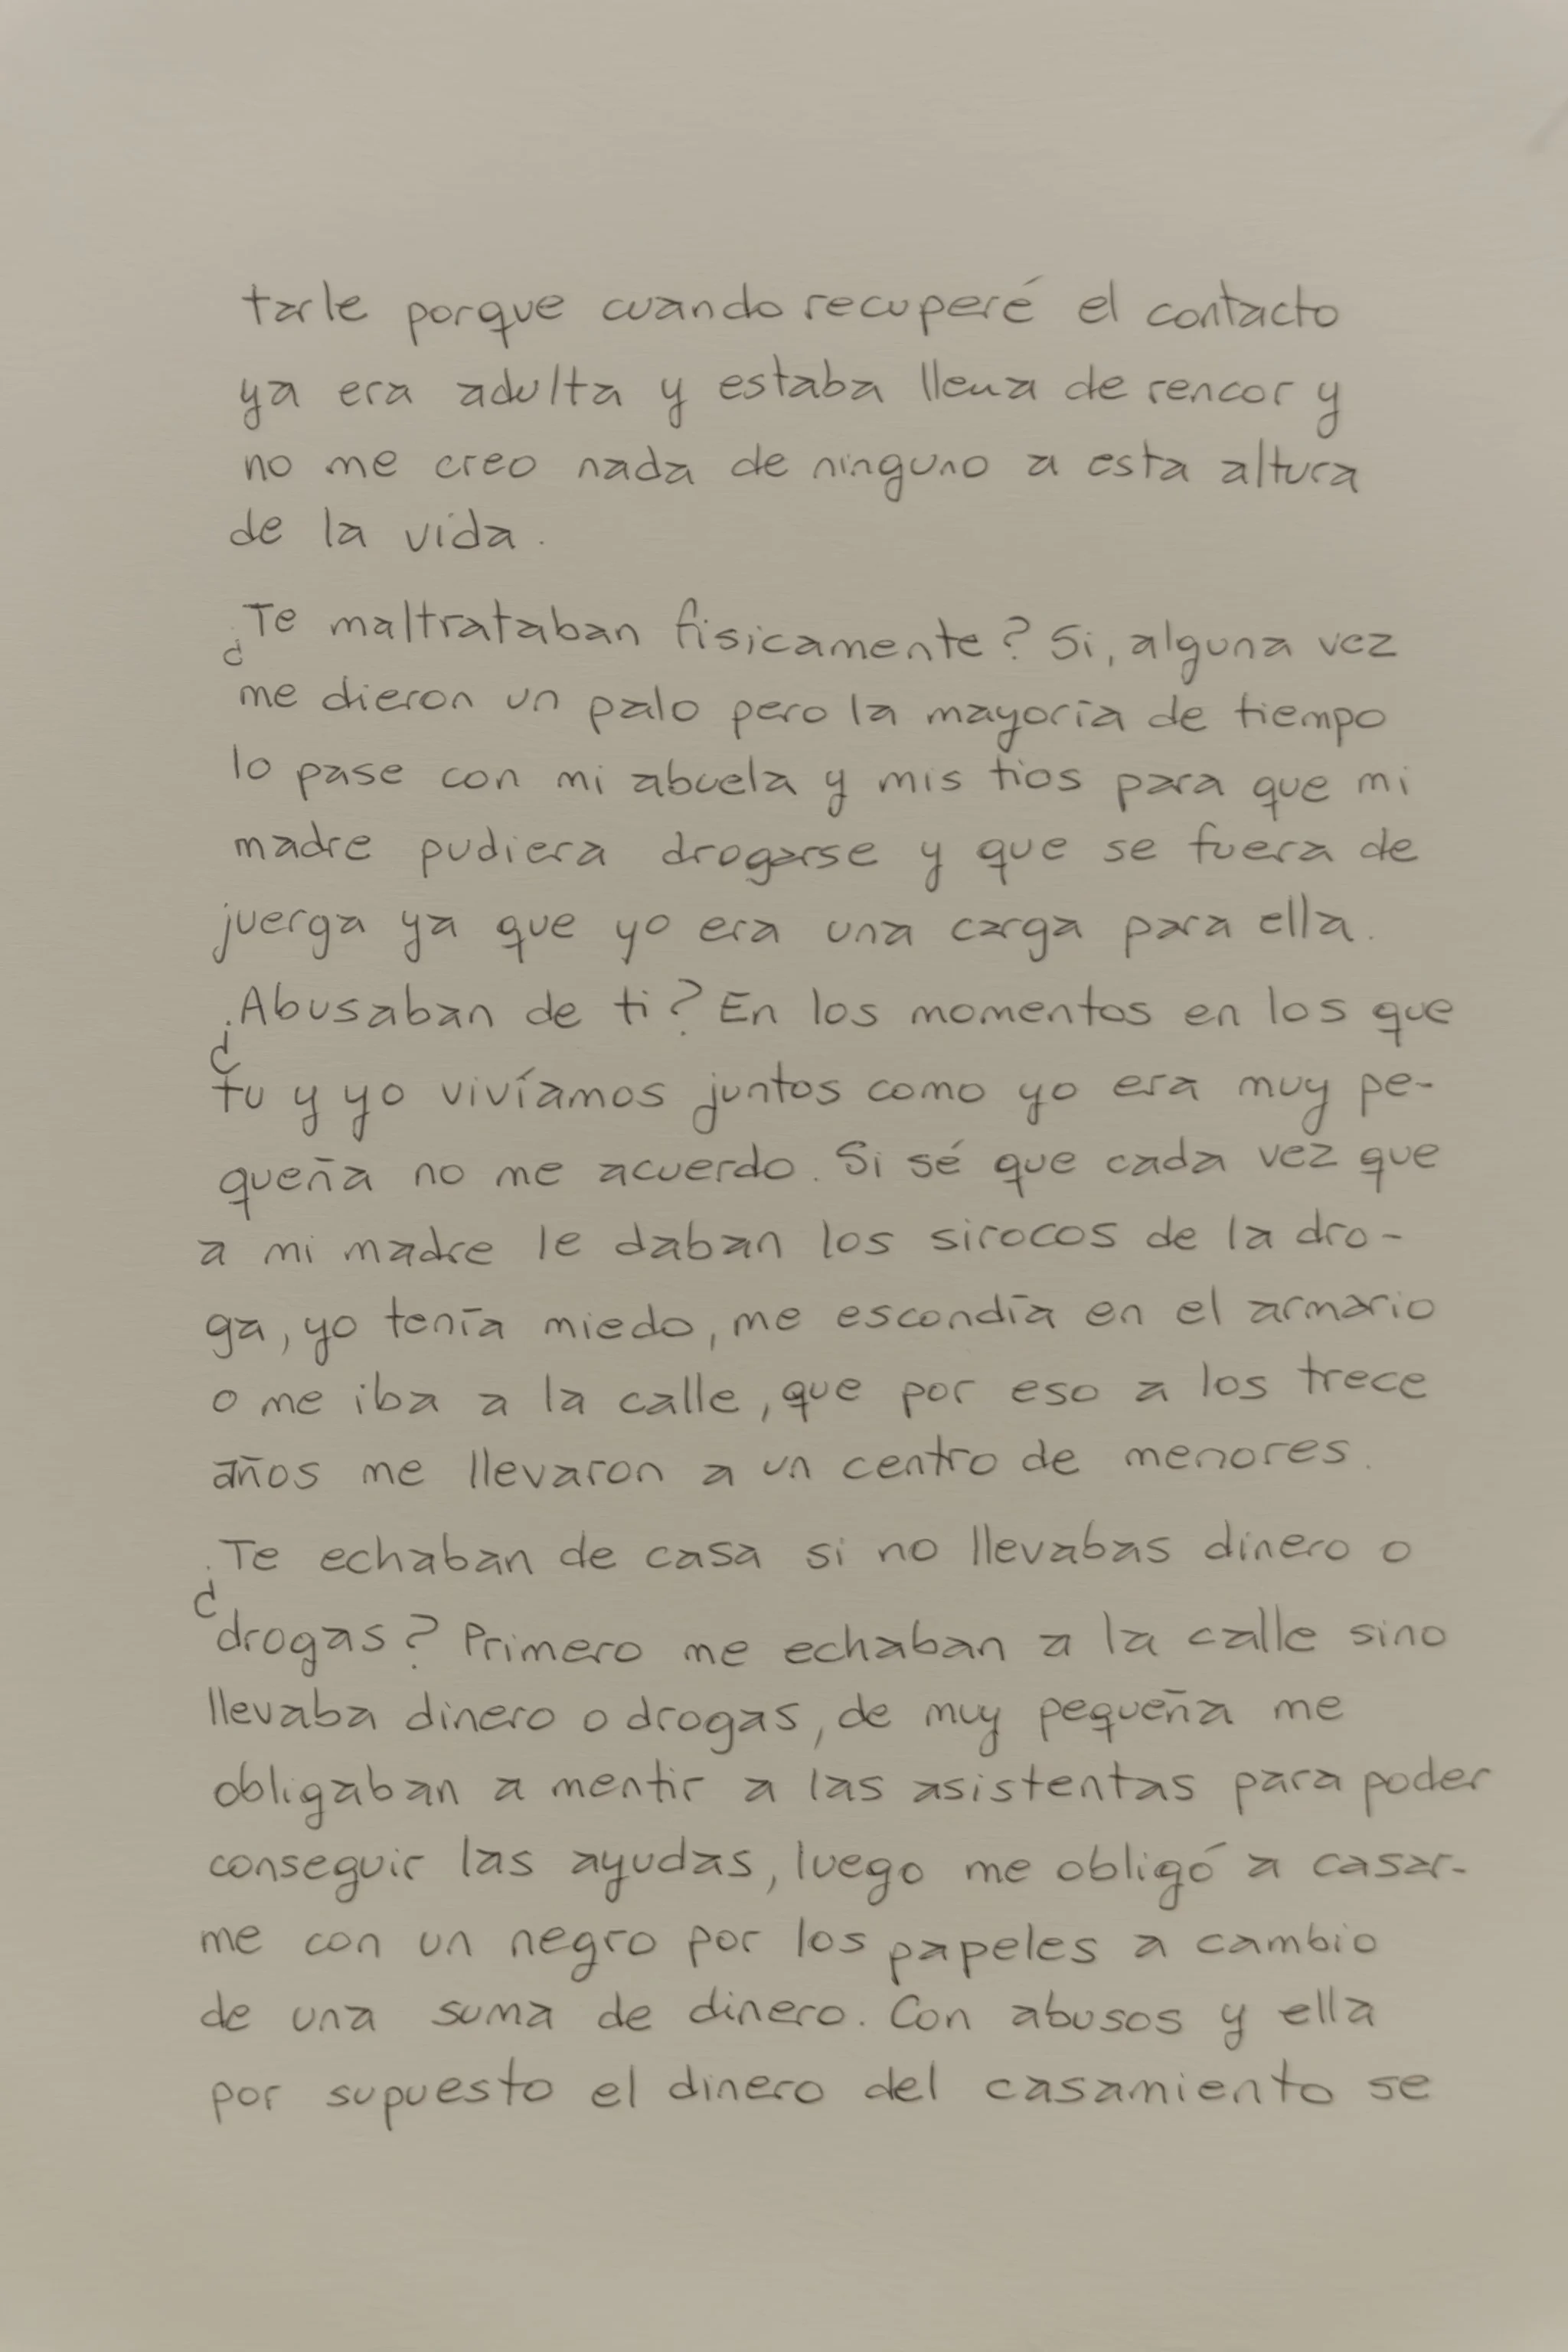 tarle porque cuando recuperé el contacto
ya era adulta y estaba llena de rencor y
no me creo nada de ninguno a esta altura
de la vida.
¿Te maltrataban fisicamente? Si, alguna vez
me dieron un palo pero la mayoría de tiempo
lo pase con mi abuela y mis tios para que mi
madre pudiera drogarse y que se fuera de
juerga ya que yo era una carga para ella.
¿Abusaban de ti? En los momentos en los que
tu y yo vivíamos juntos como yo era muy pe-
queña no me acuerdo. Si sé que cada vez que
a mi madre le daban los sirocos de la dro-
ga, yo tenía miedo, me escondía en el armario
o me iba a la calle, que por eso a los trece
años me llevaron a un centro de menores.
¿Te echaban de casa si no llevabas dinero o
drogas? Primero me echaban a la calle sino
llevaba dinero o drogas, de muy pequeña me
obligaban a mentir a las asistentas para poder
conseguir las ayudas, luego me obligó a casar-
me con un negro por los papeles a cambio
de una suma de dinero. Con abusos y ella
por supuesto el dinero del casamiento se